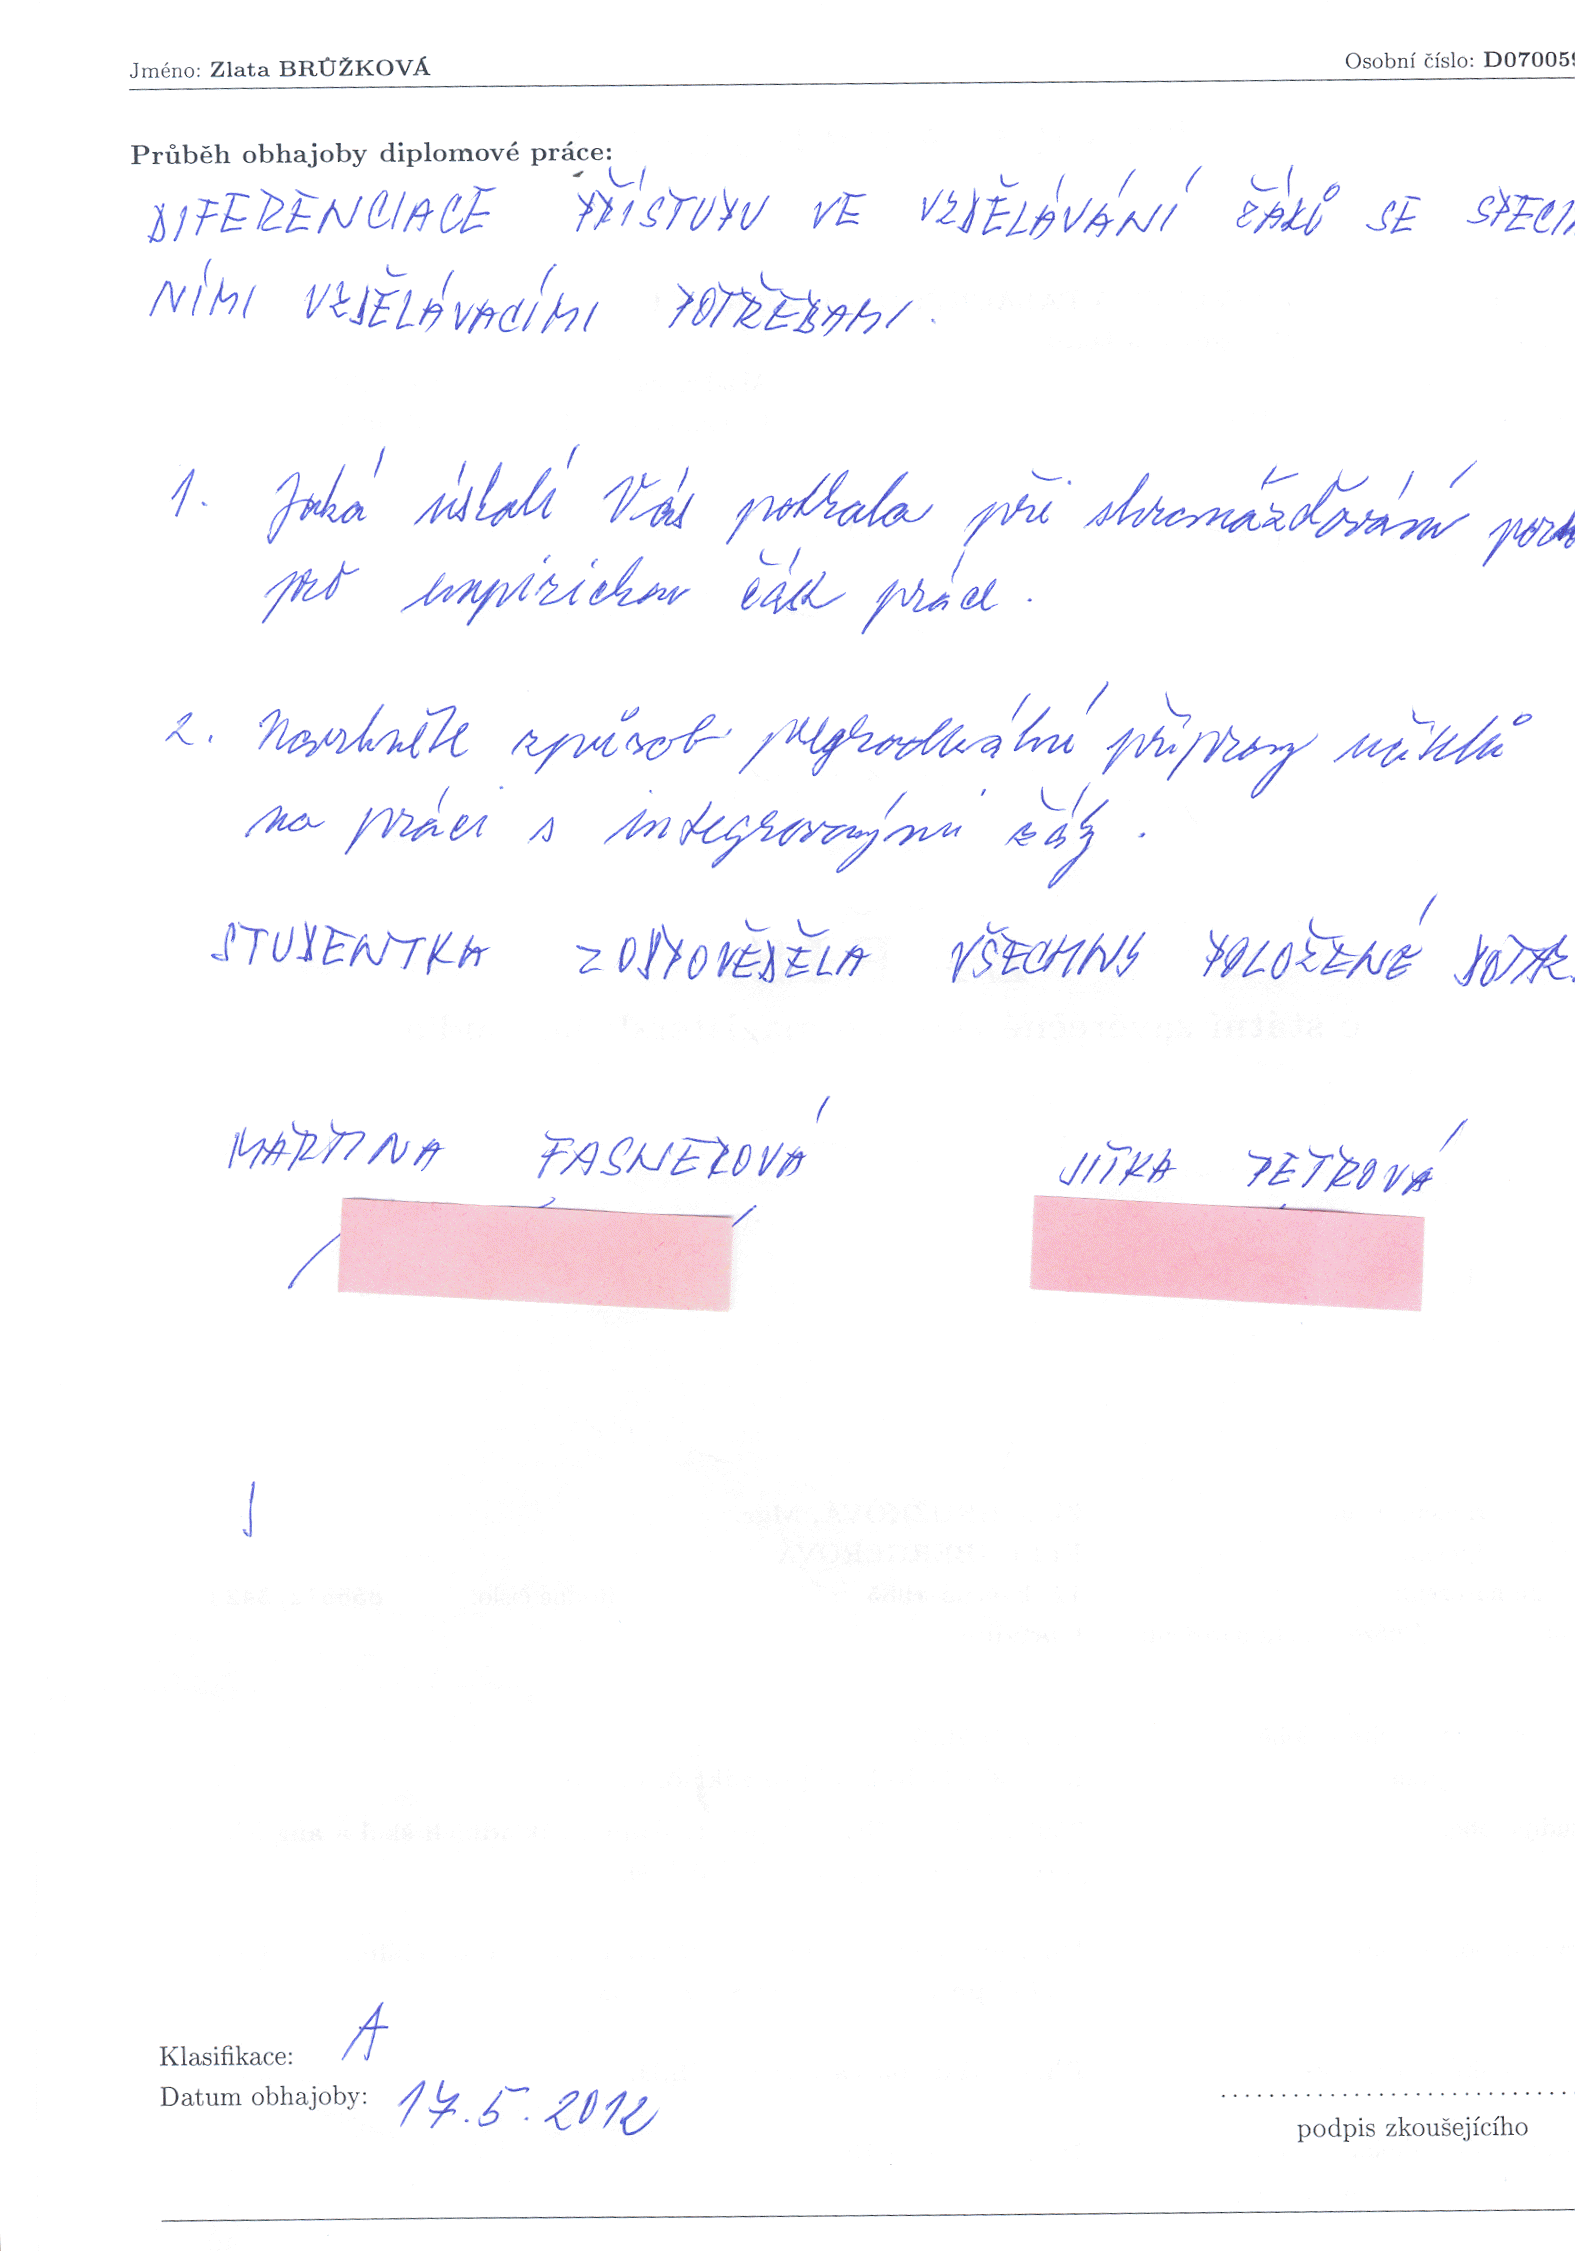 Jméno: Zlata BRŮŽKOVÁ Osobní číslo: D070059
Průběh obhajoby diplomové práce:
DIFERENCIACE PŘÍSTUPU VE VZDĚLÁVÁNÍ ŽÁKŮ SE SPECI
NÍMI VZDĚLÁVACÍMI POTŘEBAMI.
1. Jaká úskalí Vás potkala při shromažďování
pro empirickou část práce.
2. Navrhněte způsob pregraduální přípravy učitelů
na práci s integrovanými žáky.
STUDENTKA ZODPOVĚDĚLA VŠECHNY POLOŽENÉ DOTAZ
MARTINA FASNEROVÁ JITKA PETROVÁ
Klasifikace: A
Datum obhajoby: 17.5.2012
podpis zkoušejícího